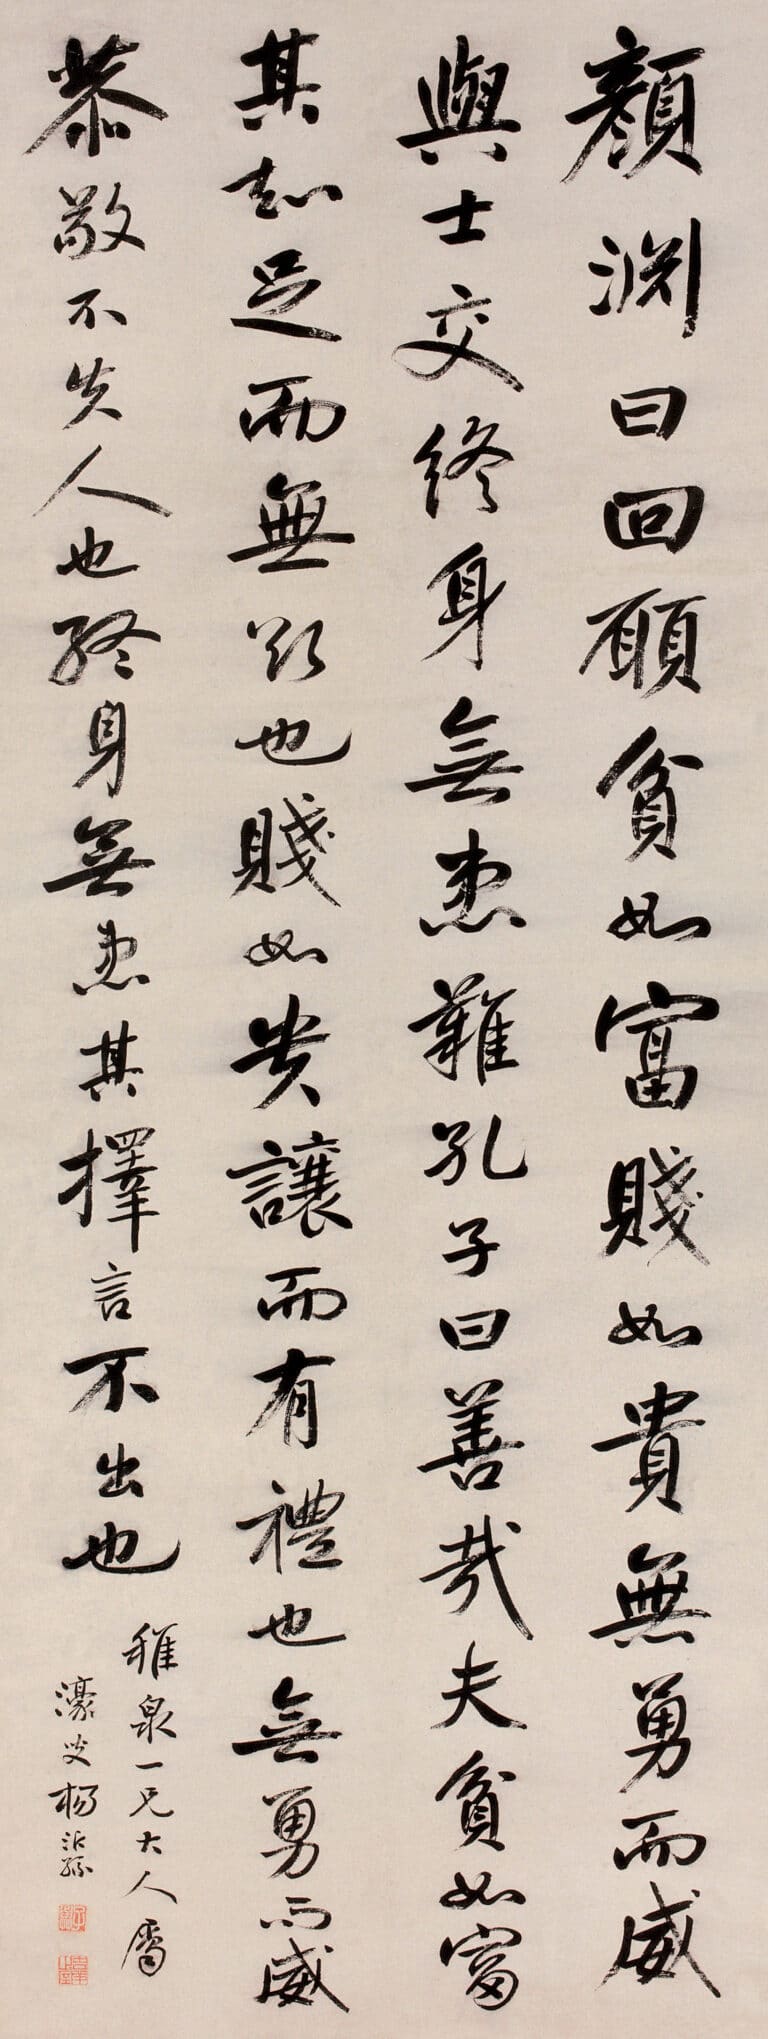 顏渊曰回願貧如富賤如貴無勇而威
與士交終身無患難孔子曰善哉夫貧如富
其知足而無欲也賤如貴讓而有禮也無勇而威
恭敬不失人也終身無患其擇言不出也
稚泉一兄大人屬
濠叟楊沂孫